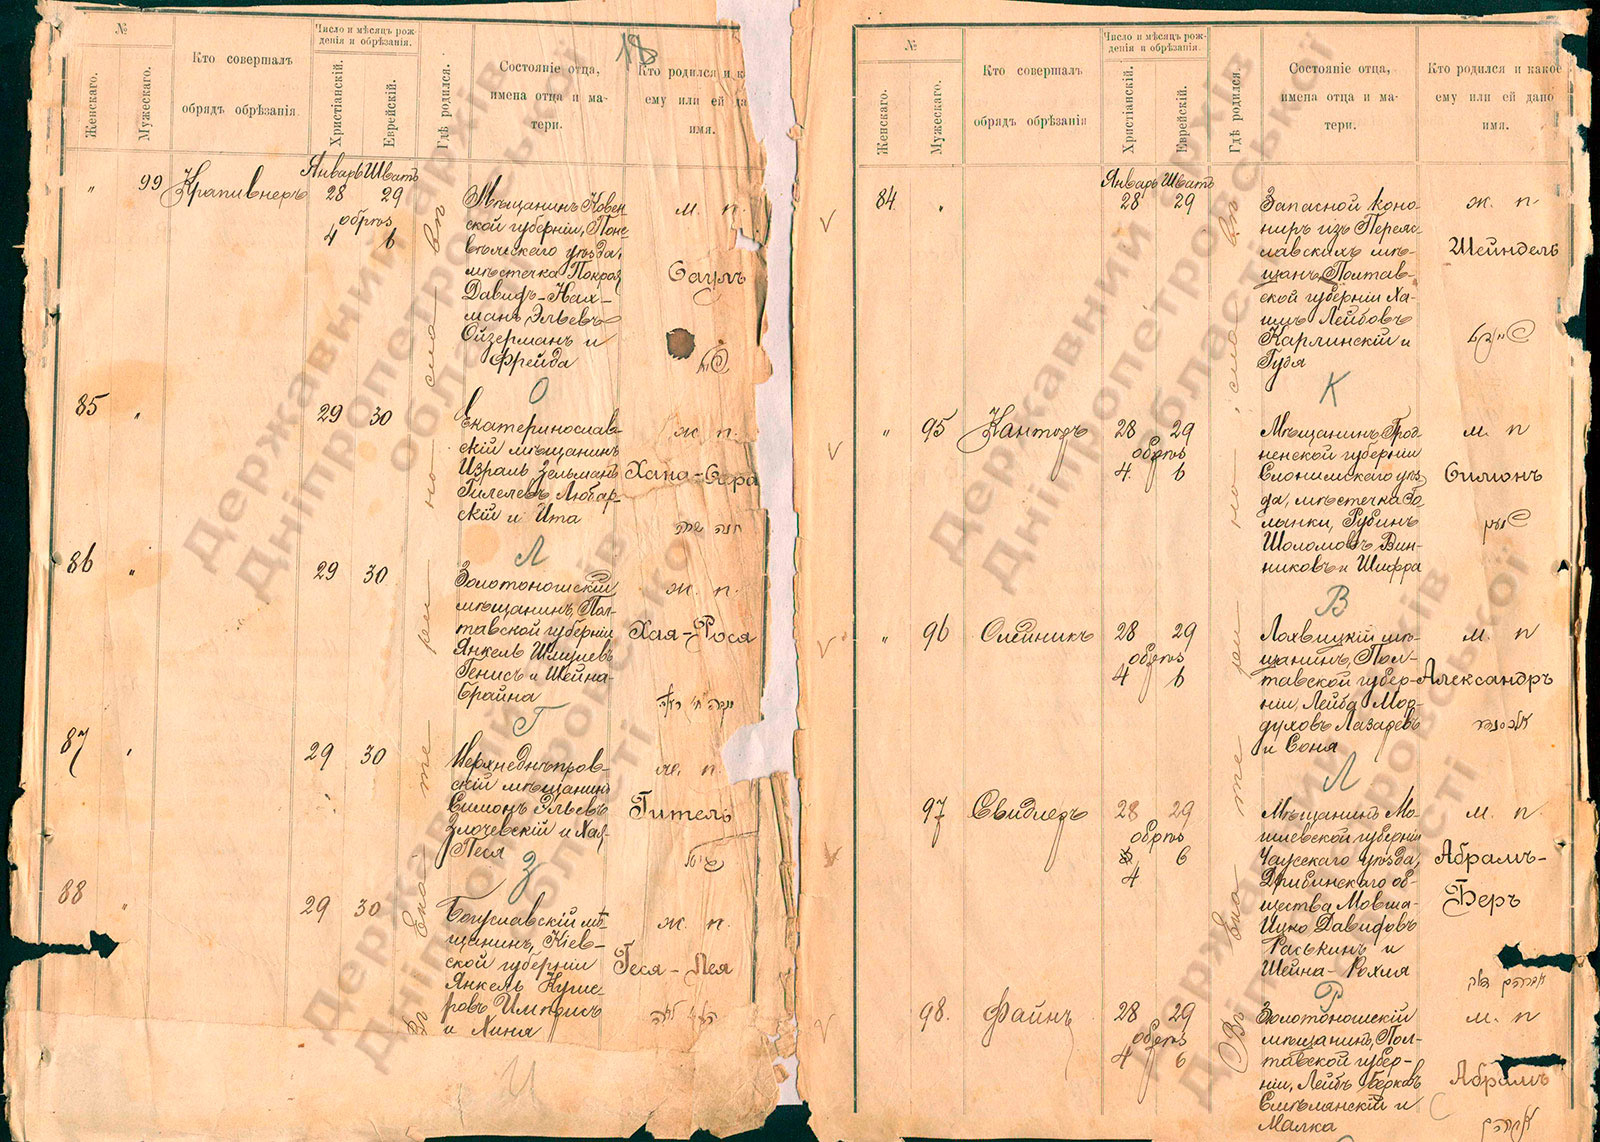 18
№
Женскаго.
Мужескаго.
Кто совершалъ
обрядъ обрѣзанія.
Число и мѣсяцъ рож-
денія и обрѣзанія.
Христіанскій.
Еврейскій.
Гдѣ родился.
Состояніе отца,
имена отца и ма-
тери.
Кто родился и к
ему или ей да
имя.
„
99
Крапивнеръ
Январь Шватъ
28 29
обрѣз
4 6
Мѣщанинъ Ковен-
ской губерніи, Поне-
вѣжскаго уѣзда,
мѣстечка Покроя
Давидъ-Нах-
манъ Эльевъ
Ойзерманъ и
Фрейда
О
м. п.
Саулъ
85
„
29 30
Екатеринослав-
скій мѣщанинъ
Израиль Зельманъ
Гилелевъ Любар-
скій и Ита
Л
ж. п.
Хана-Сара
חנה שרה
86
„
29 30
Золотоношскій
мѣщанинъ, Пол-
тавской губерніи
Янкель Шмулевъ
Генисъ и Шейна-
Брайна
Г
ж. п.
Хая-Рося
87
„
29 30
Верхнеднѣпров-
скій мѣщанинъ
Симонъ Эльевъ
Злочевскій и Хая-
Песя
З
ж. п.
Гитель
88
„
29 30
Богуславскій мѣ-
щанинъ, Кіев-
ской губерніи
Янкель Кусие-
ровъ Имприсъ
и Хиня
И
ж. п.
Геся-Лея
Въ Екате рино слав ѣ
№
Женскаго.
Мужескаго.
Кто совершалъ
обрядъ обрѣзанія
Число и мѣсяцъ рож-
денія и обрѣзанія.
Христіанскій.
Еврейскій.
Гдѣ родился.
Состояніе отца,
имена отца и ма-
тери.
Кто родился и какое
ему или ей дано
имя.
84
„
Январь Шватъ
28 29
Запасной кано-
ниръ изъ Переяс-
лавскихъ мѣ-
щанъ, Полтав-
ской губерніи Ха-
имъ Лейбовъ
Карлинскій и
Гудя
К
ж. п
Шейндель
„
95
Канторъ
28 29
обрѣз
4. 6
Мѣщанинъ Грод-
ненской губерніи
Слонимскаго уѣз-
да, мѣстечка Зо-
лынки, Рубинъ
Шоломовъ Вин-
никовъ и Шифра
В
м. п
Симонъ
„
96
Олейникъ
28 29
обрѣз
4 6
Лохвицкій мѣ-
щанинъ, Пол-
тавской губер-
ніи, Лейба Мор-
духовъ Лазаревъ
и Соня
Л
м. п
Александръ
97
Свидлеръ
28 29
обрѣз
4 6
Мѣщанинъ Мо-
гилевской губерніи
Чаусскаго уѣзда,
Дрибинскаго об-
щества Мовша-
Ицко Давидовъ
Раськинъ и
Шейна-Рохля
Р
м. п.
Абрамъ-
Беръ
אברהם בער
98.
Файнъ
28 29
обрѣз
4 6
Золотоношскій
мѣщанинъ, Пол-
тавской губер-
ніи, Лейбъ Берковъ
Смѣлянскій и
Малка
С
м. п
Абрамъ
אברהם
Въ Екате рино слав ѣ
Державний архів
Дніпропетровської
області